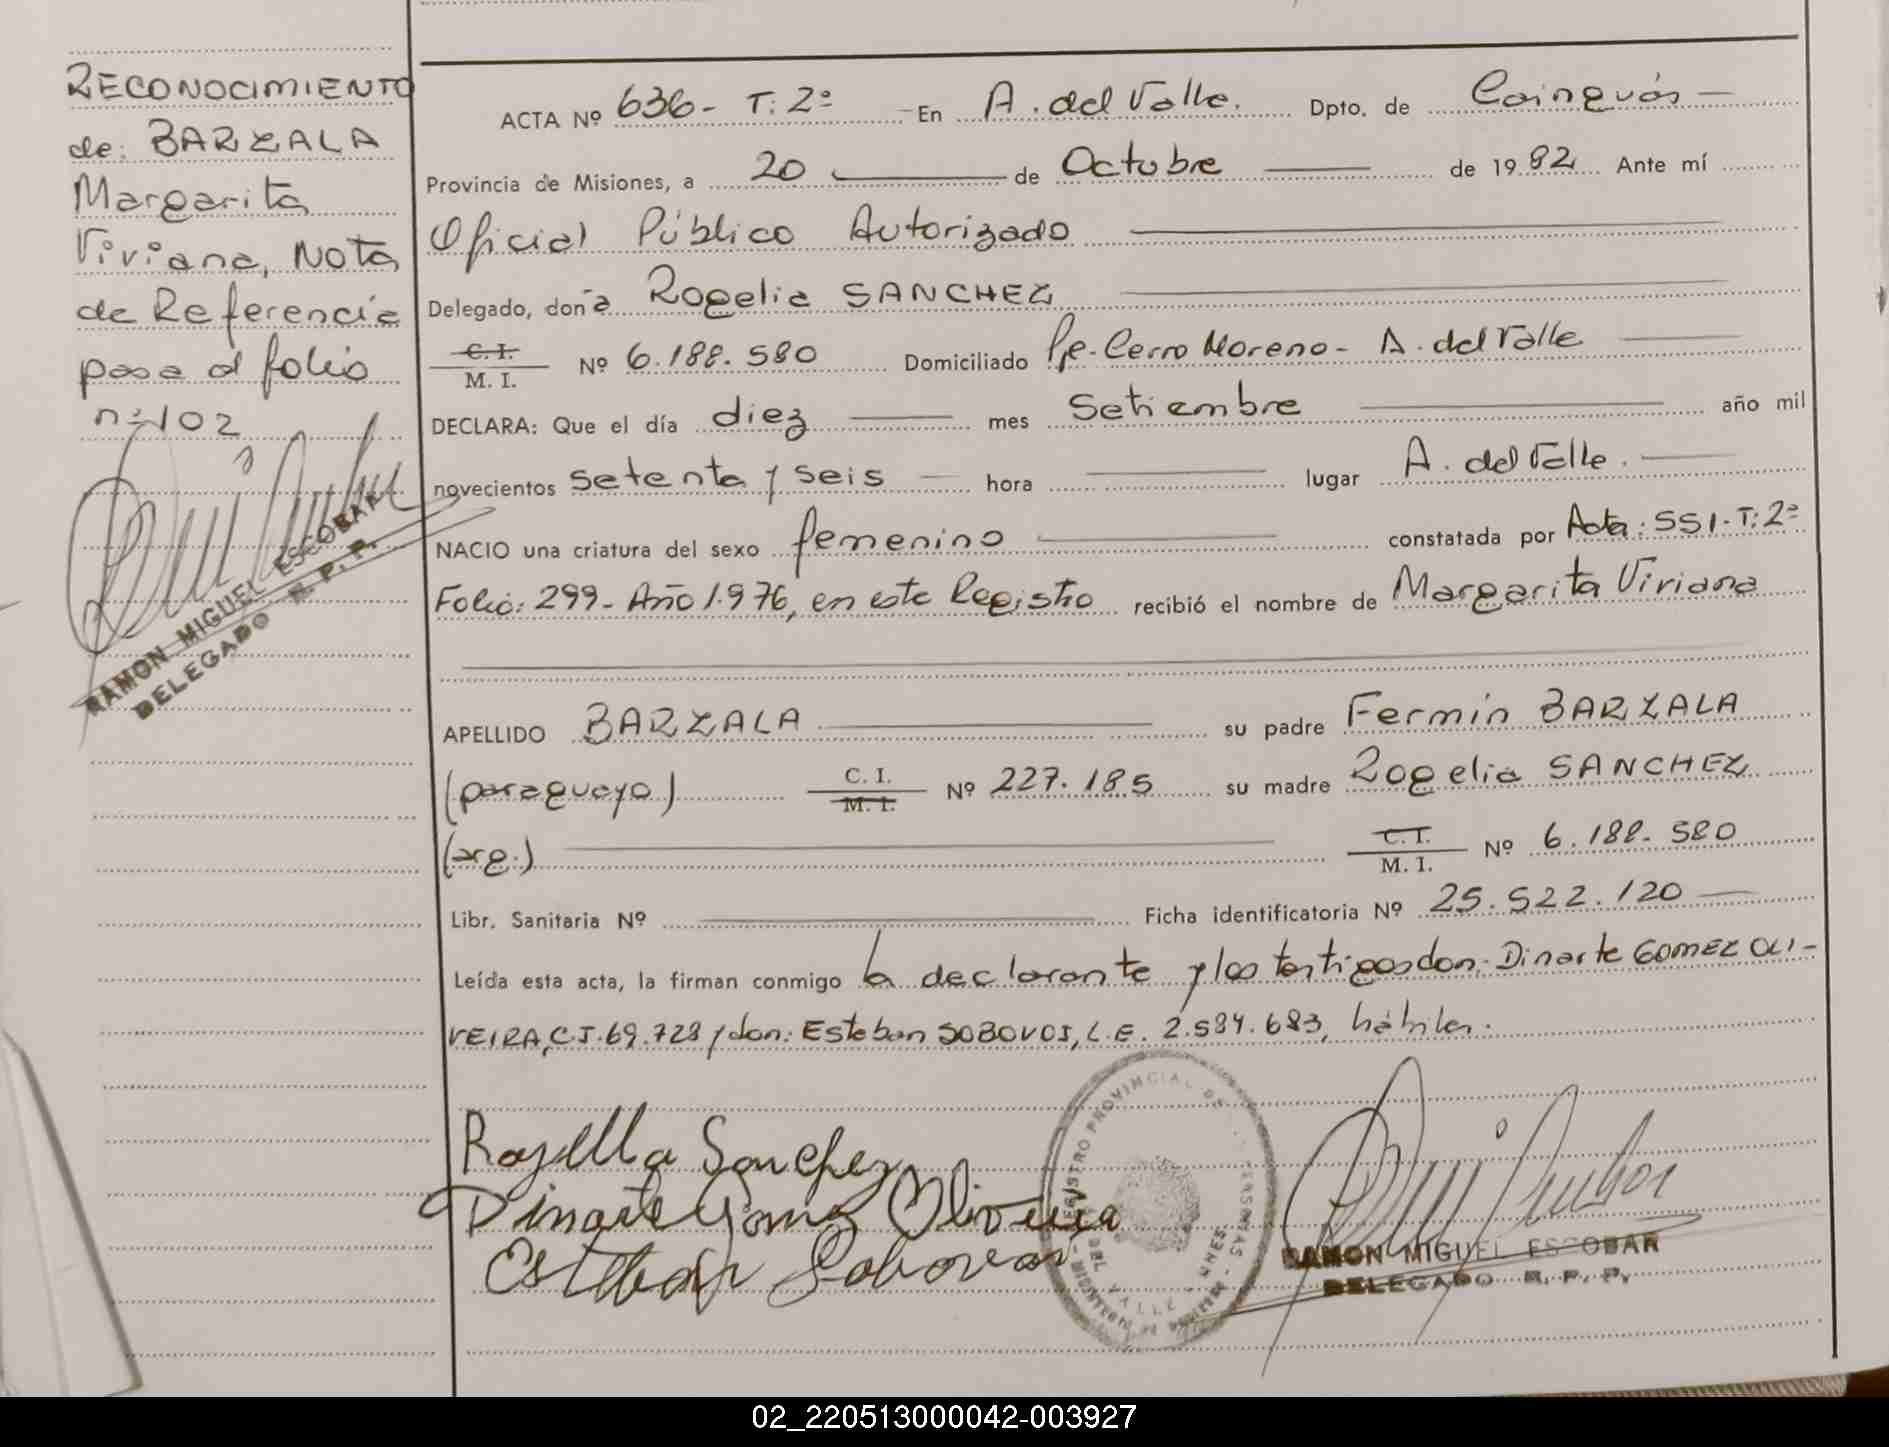 RECONOCIMIENTO
de: BARZALA
Margarita
Viviana, Nota
de Referencia
pasa al folio
nº 102
RAMON MIGUEL ESCOBAR
DELEGADO R. P. P.
ACTA Nº 636- T: 2º En A. del Valle. Dpto. de Cainguás
Provincia de Misiones, a 20 de Octubre de 1982 Ante mí
Oficial Público Autorizado
Delegado, doña Rogelia SANCHEZ
C. I.
M. I. Nº 6.188.580 Domiciliado Pje. Cerro Moreno - A. del Valle
DECLARA: Que el día diez mes Setiembre año mil
novecientos setenta y seis hora lugar A. del Valle.
NACIO una criatura del sexo femenino constatada por Acta: 551-T: 2º
Folio: 299- Año 1.976, en este Registro recibió el nombre de Margarita Viviana
APELLIDO BARZALA su padre Fermín BARZALA
(paraguayo) C. I.
M. I. Nº 227.185 su madre Rogelia SANCHEZ
(arg.) C. I.
M. I. Nº 6.188.580
Libr. Sanitaria Nº Ficha identificatoria Nº 25.522.120
Leída esta acta, la firman conmigo la declarante y los testigos don: Dinarte GOMEZ OLI-
VEIRA, C.I. 69.728 y don: Esteban SOBOVOS, L.E. 2.584.683, hábiles.
Rogelia Sanchez
Dinarte Gomez Oliveira
Esteban
REGISTRO PROVINCIAL DE LAS PERSONAS
DEL VALLE
RAMON MIGUEL ESCOBAR
DELEGADO R. P. P.
02_220513000042-003927